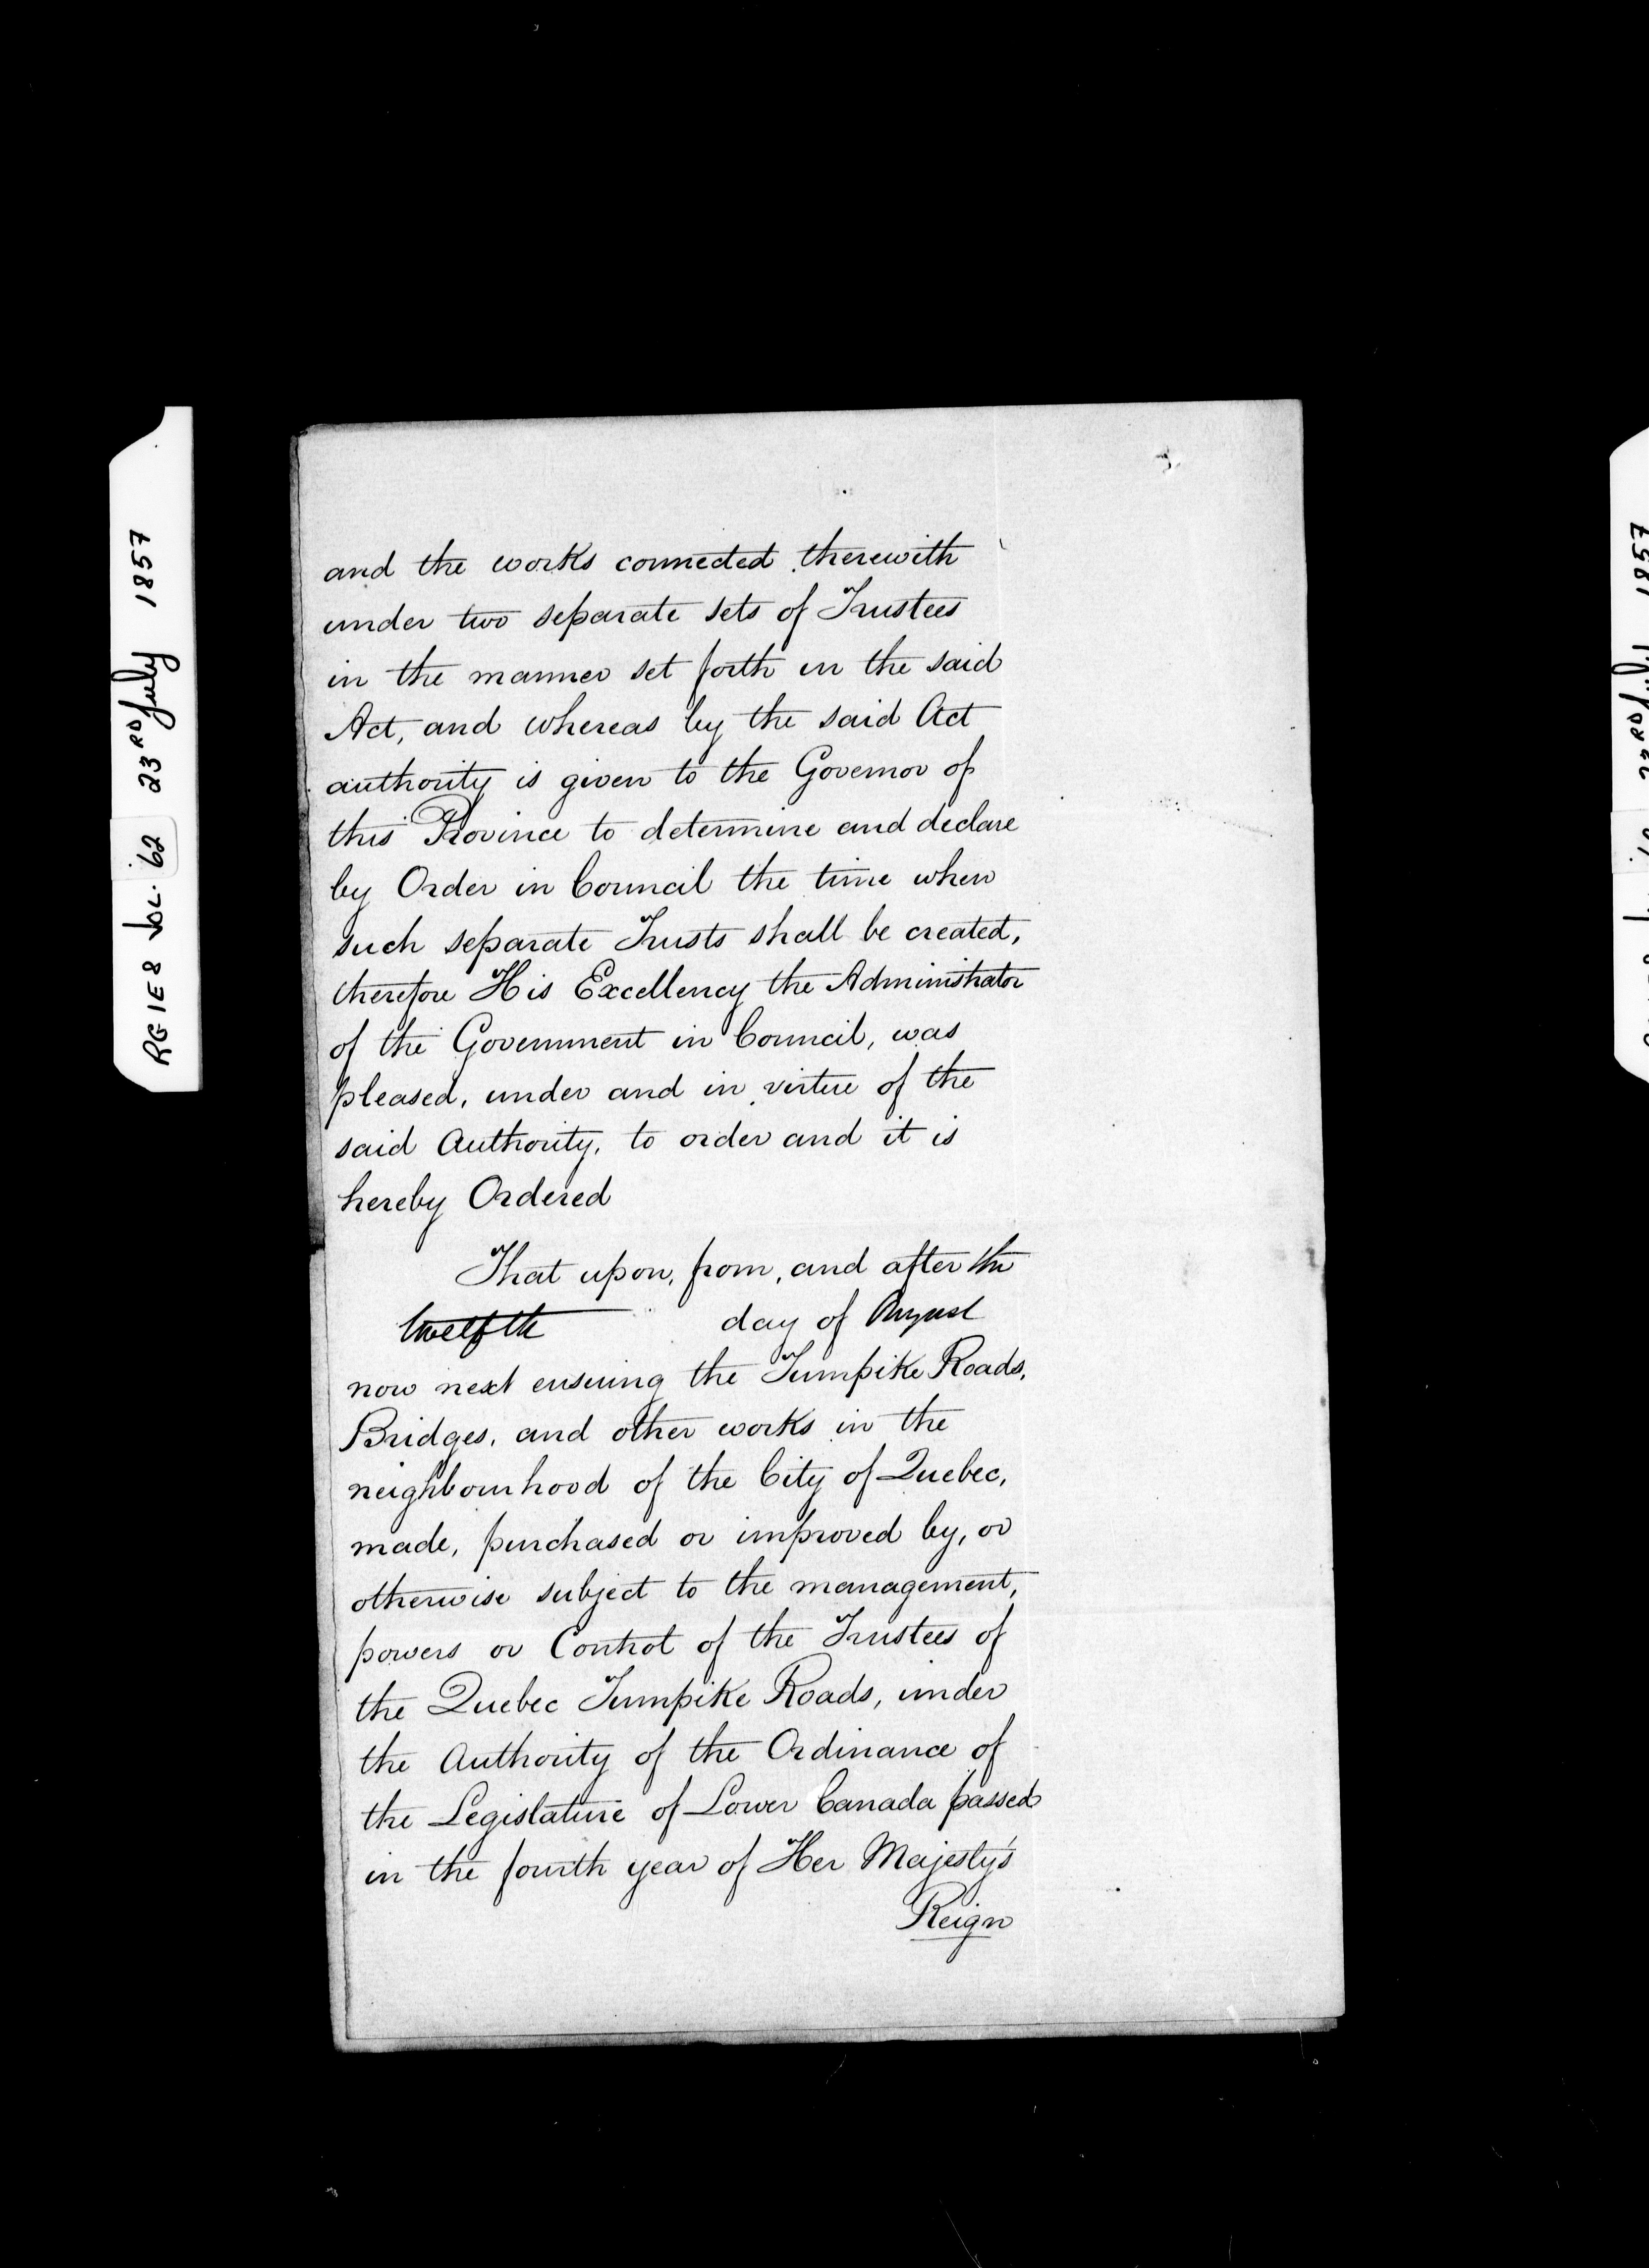 RG1E8 VOL. 62 23RD July 1857
3.
and the works connected therewith
under two separate sets of Trustees
in the manner set forth in the said
Act, and whereas by the said Act
authority is given to the Governor of
this Province to determine and declare
by Order in Council the time when
such separate Trusts shall be created,
therefore His Excellency the Administrator
of the Government in Council, was
pleased, under and in virtue of the
said Authority, to order and it is
hereby Ordered
That upon, from, and after the
twelfth day of August
now next ensuing the Turnpike Roads,
Bridges, and other works in the
neighbourhood of the City of Quebec,
made, purchased or improved by, or
otherwise subject to the management,
powers or Control of the Trustees of
the Quebec Turnpike Roads, under
the Authority of the Ordinance of
the Legislature of Lower Canada passed
in the fourth year of Her Majesty's
Reign